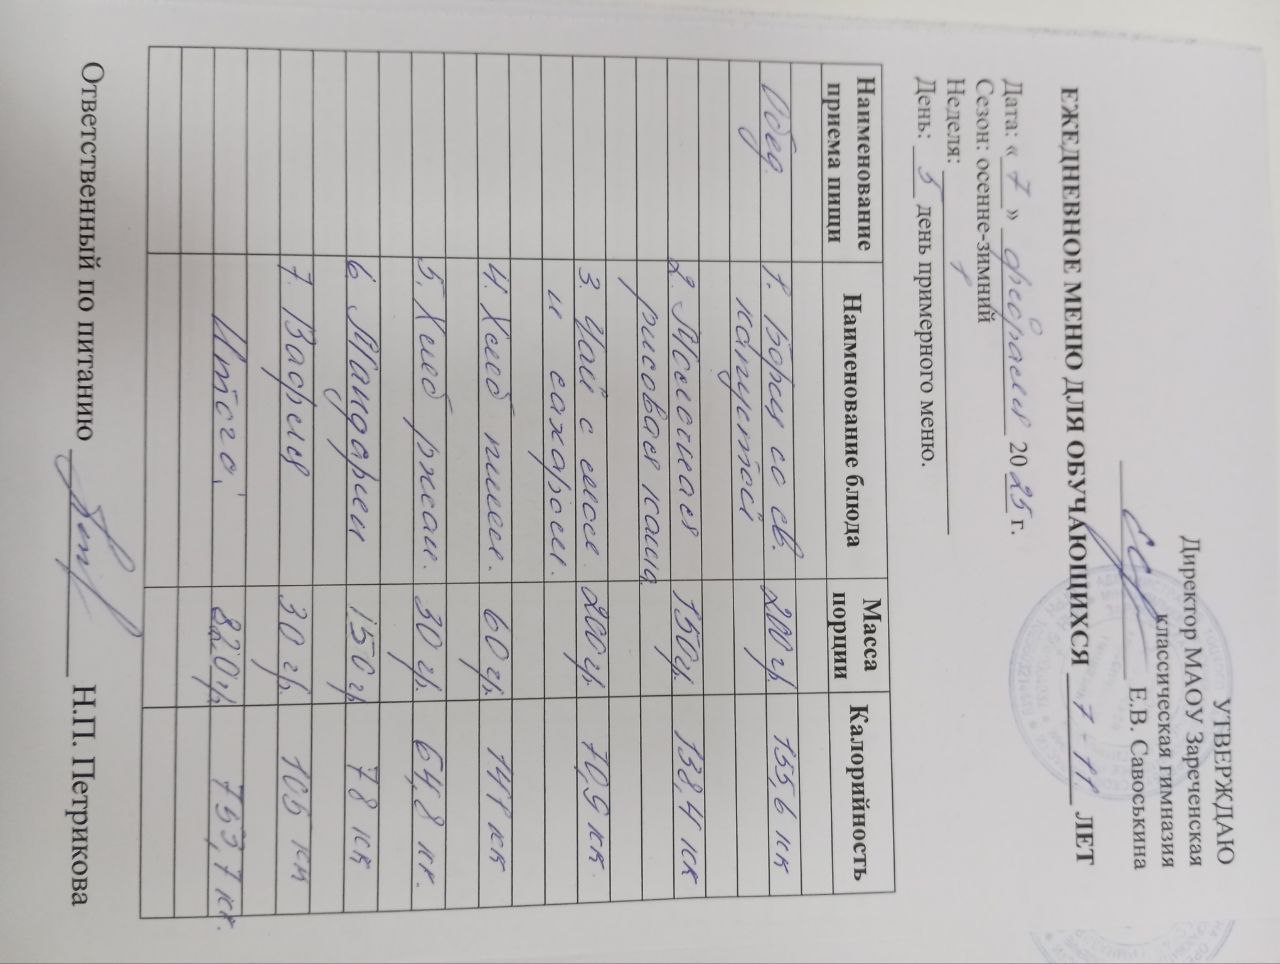 УТВЕРЖДАЮ
Директор МАОУ Зареченская
классическая гимназия
Е.В. Савоськина
ЕЖЕДНЕВНОЕ МЕНЮ ДЛЯ ОБУЧАЮЩИХСЯ 7-11 ЛЕТ
Дата: «7» февраля 2025 г.
Сезон: осенне-зимний
Неделя: 1
День: 5 день примерного меню.
Наименование приема пищи Наименование блюда Масса порции Калорийность
Обед. 1. Борщ со св. 200 гр. 155,6 кк
капустой
2. Молочная 150 гр. 138,4 кк
рисовая каша
3. Чай с 200 гр. 70,9 кк.
и сахаром.
4. Хлеб пшен. 60 гр. 141 кк
5. Хлеб ржан. 30 гр. 64,8 кк.
6. Мандарин 150 гр 78 кк
7. Вафля 30 гр. 105 кк
Итого: 820 гр. 753,7 кк.
Ответственный по питанию Н.П. Петрикова